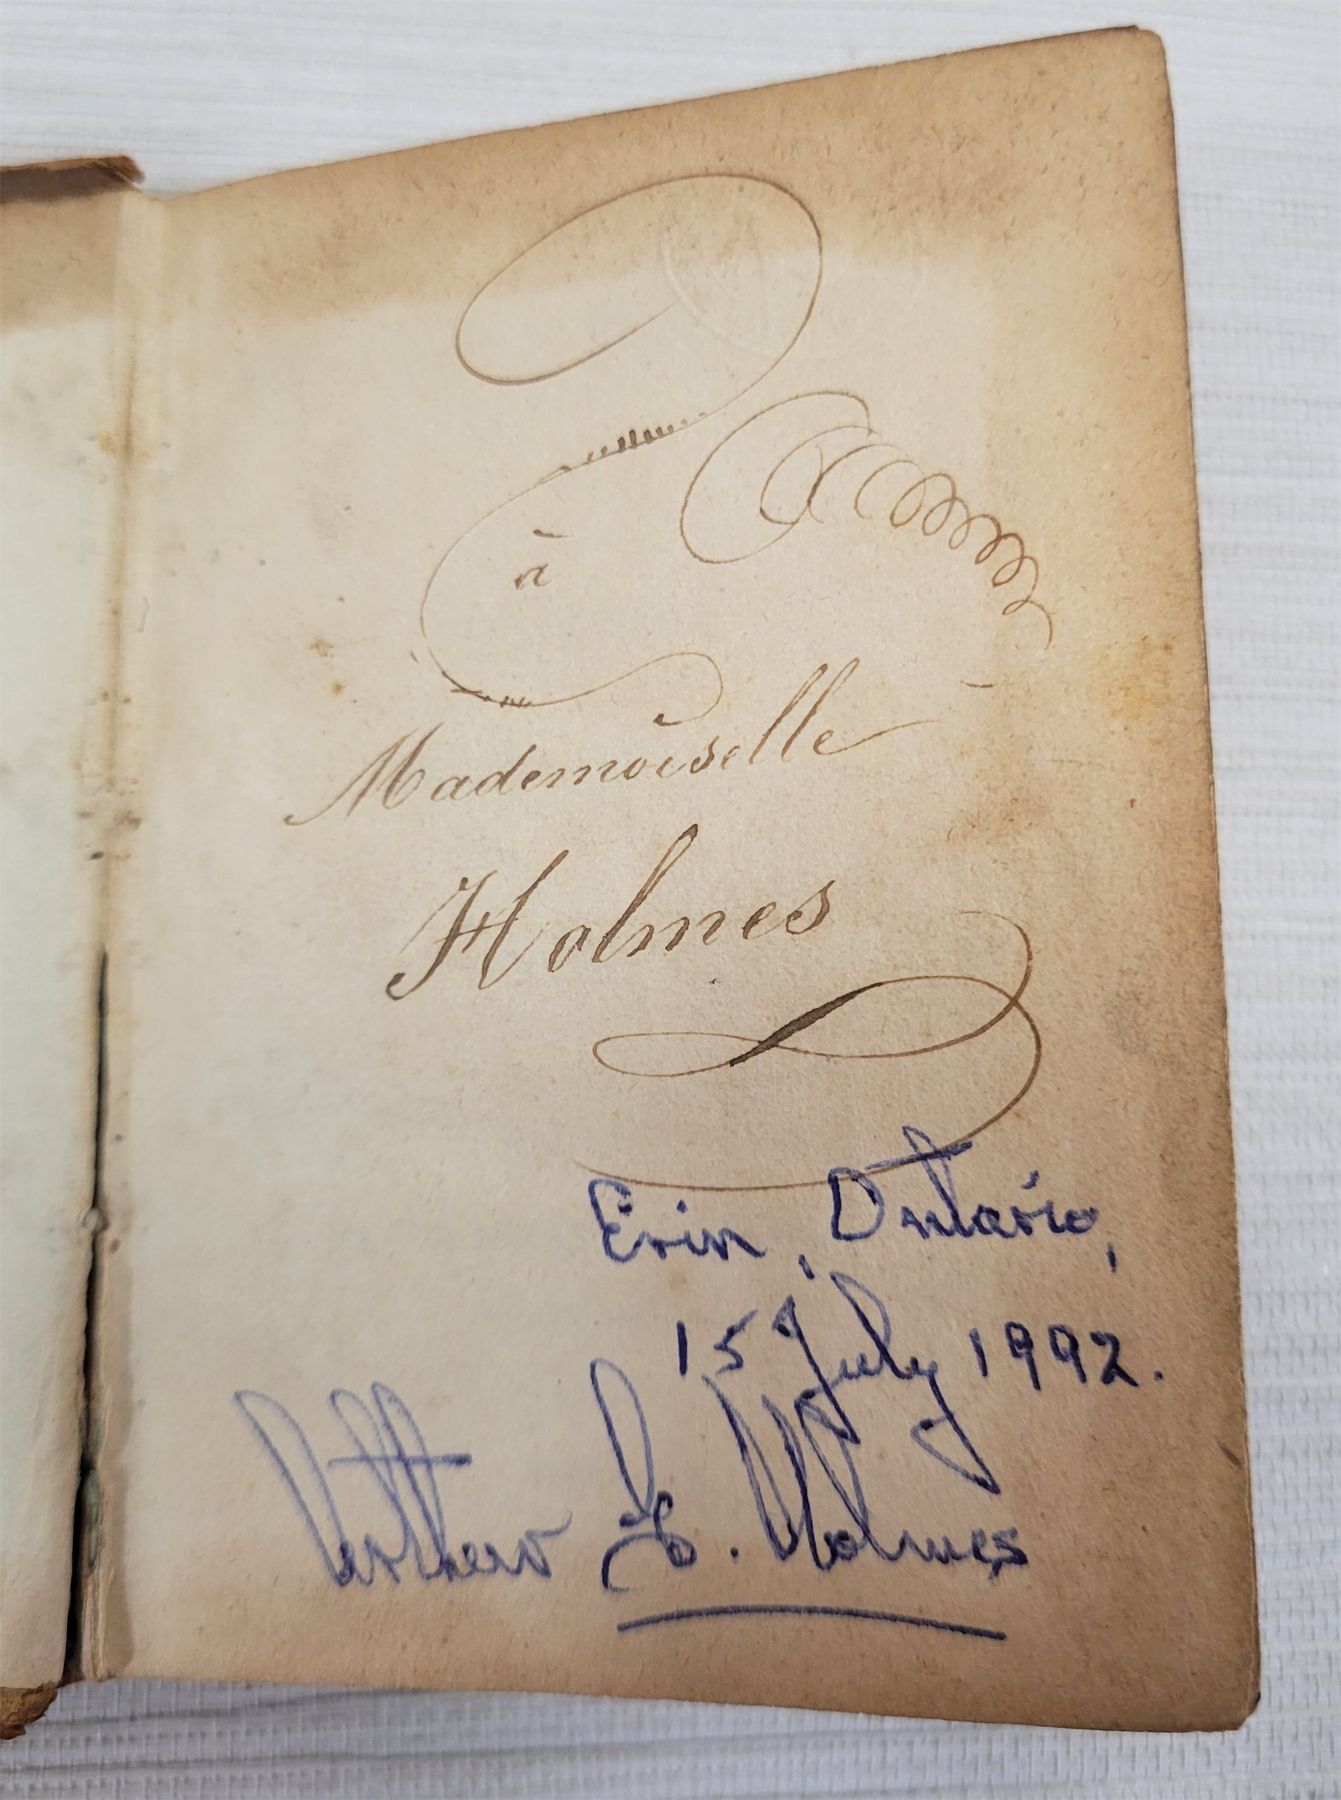 à
Mademoiselle
Holmes
Erin, Ontario,
15 July 1992.
Matthew G. Holmes